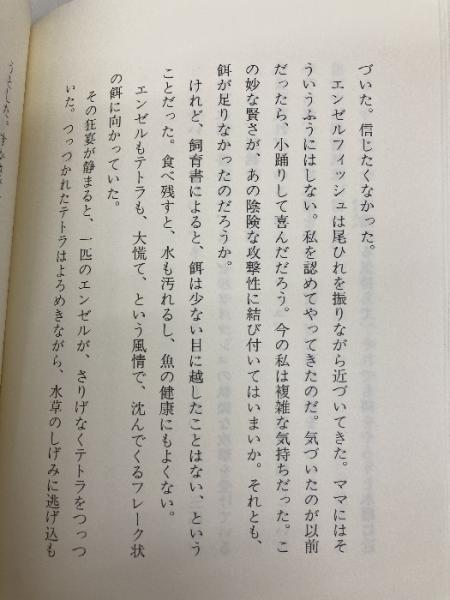 づいた。信じたくなかった。
エンゼルフィッシュは尾ひれを振りながら近づいてきた。ママにはそ
ういうふうにはしない。私を認めてやってきたのだ。気づいたのが以前
だったら、小踊りして喜んだだろう。今の私は複雑な気持ちだった。こ
の妙な賢さが、あの陰険な攻撃性に結び付いてはいまいか。それとも、
餌が足りなかったのだろうか。
けれど、飼育書によると、餌は少ない目に越したことはない、という
ことだった。食べ残すと、水も汚れるし、魚の健康にもよくない。
エンゼルもテトラも、大慌て、という風情で、沈んでくるフレーク状
の餌に向かっていた。
その狂宴が静まると、一匹のエンゼルが、さりげなくテトラをつっつ
いた。つっつかれたテトラはよろめきながら、水草のしげみに逃げ込も